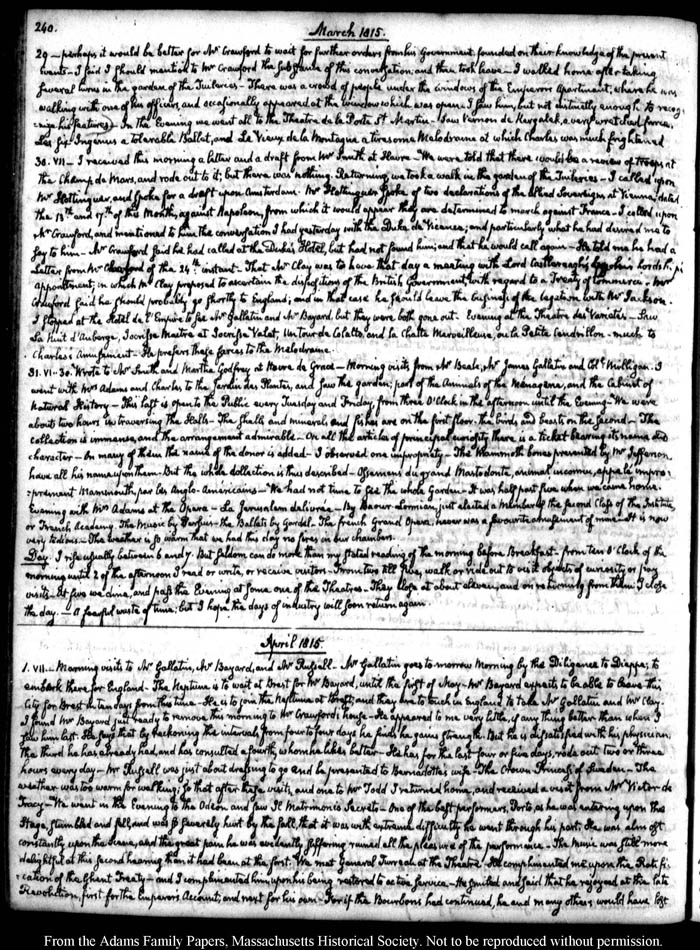 240.
March 1815.
29 — perhaps it would be better for Mr Crawford to wait for further orders from his Government founded on their knowledge of the present
events — I said I should mention to Mr Crawford the substance of this conversation, and then took leave — I walked home after taking
several turns in the garden of the Tuileries — There was a crowd of people under the windows of the Emperor's Apartment, where he was
walking with one of his officers, and occasionally appeared at the window which was open. I saw him, but not distinctly enough to recog-
-nize his features — In the Evening we went all to the Theatre de la Porte St Martin — Saw Vernon de Kergalek, a very wretched farce,
Les Six Ingenus a tolerable Ballet, and Le Vieux de la Montagne a tiresome Melodrama at which Charles was much frightened
30. VII — I received this morning a letter and a draft from Mr Smith at Havre — We were told that there would be a review of troops at
the Champ de Mars, and rode out to it; but there was nothing. Returning, we took a walk in the garden of the Tuileries — I called upon
Mr Hottinguer, and spoke for a draft upon Amsterdam. Mr Hottinguer spoke of two declarations of the allied Sovereigns at Vienna, dated
the 13th and 17th of this Month, against Napoleon, from which it would appear they are determined to march against France — I called upon
Mr Crawford, and mentioned to him the conversation I had yesterday with the Duke de Vicenza; and particularly what he had desired me to
say to him — Mr Crawford said he had called at the Duke's Hotel, but had not found him; and that he would call again — He told me he had a
Letter from Mr of the 24th instant — That Mr Clay was to have that day a meeting with Lord Castlereagh, by his Lordship's
appointment, in which Mr Clay proposed to ascertain the dispositions of the British Government, with regard to a Treaty of Commerce. Mr
Crawford said he should probably go shortly to England; and in that case he should leave the business of the legation with Mr Jackson.
I stopped at the Hotel de l'Empire to see Mr Gallatin and Mr Bayard, but they were both gone out. Evening at the Theatre des Varietés — Saw
La Nuit d'Auberge, Jocrisse Maitre et Jocrisse Valet, Un tour de Colalto, and la Chatte Merveilleuse, ou la Petite Cendrillon — much to
Charles's Amusement — He prefers these farces to the Melodrame.
31. VI-30. Wrote to Mr Smith and Martha Godfrey at Havre de Grace — Morning visits from Mr Beale, Mr James Gallatin and Coll. Milligan. I
went with Mrs Adams and Charles to the Jardin des Plantes, and saw the garden; part of the Animals of the Menagerie, and the Cabinet of
Natural History — This last is open to the Public every Tuesday and Friday, from three O'Clock in the afternoon until the Evening — We were
about two hours in traversing the Halls — The shells and minerals and fishes are on the first floor: the birds and beasts on the second — The
collection is immense, and the arrangement admirable — On all the articles of principal curiosity there is a ticket bearing its name and
character — On many of them the name of the donor is added — I observed one impropriety — The Mammoth bones presented by Mr Jefferson
have all his name upon them — But the whole collection is thus described — Ossemens du grand Mastodonte, animal inconnu, appelé impro-
-prement Mammouth, par les Anglo-Americains — We had not time to see the whole Garden — It was half past five when we came home.
Evening with Mrs Adams at the Opera — La Jerusalem delivrée — By Baour-Lormian, just elected a Member of the second Class of the Institute,
or French Academy. The Music by Persuis — the Ballets by Gardel. The French Grand Opera never was a favourite amusement of mine — It is now
very tedious — The weather is so warm that we had this day no fires in our chambers.
Day. I rise usually between 6 and 7. But seldom can do more than my stated reading of the morning before Breakfast — from ten O'Clock of the
morning until 2 of the afternoon I read or write, or receive visitors — From two till five, walk or ride out to visit objects of curiosity or pay
visits — At five we dine, and pass the Evening at some one of the Theatres — They close at about eleven, and on returning from them I close
the day. — A fearful waste of time; but I hope the days of industry will soon return again.
April 1815.
1. VII — Morning visits to Mr Gallatin, Mr Bayard, and Mr Russell — Mr Gallatin goes tomorrow Morning by the Diligence to Dieppe, to
embark there for England — The Neptune is to wait at Brest for Mr Bayard, until the first of May — Mr Bayard expects to be able to leave this
City for Brest in ten days from this time — He is to join the Neptune at Brest; and they are to touch in England to take Mr Gallatin and Mr Clay.
I found Mr Bayard just ready to remove this morning to Mr Crawford's house — He appeared to me very little, if any thing better than when I
saw him last. He says that by reckoning the intervals from four to four days he finds he gains strength — But he is dissatisfied with his physician.
The third he has already had, and has consulted a fourth, whom he likes better — He has for the last four or five days, rode out two or three
hours every day — Mr Russell was just about dressing to go and be presented to Bernadotte's wife — The Crown Princess of Sweden — The
weather was too warm for walking; so that after these visits, and one to Mr Todd I returned home, and received a visit from Mr Victor de
Tracy — We went in the Evening to the Odeon and saw Il Matrimonio Secreto — One of the best performers, Porto, as he was entering upon the
Stage, stumbled and fell, and was so severely hurt by the fall, that it was with extreme difficulty he went through his part; He was almost
constantly upon the Scene, and the great pain he was evidently suffering ruined all the pleasure of the performance — The Music was still more
delightful at this second hearing than it had been at the first. We met General Turreau at the Theatre — He complimented me upon the Ratifi-
-cation of the Ghent Treaty — and I complimented him upon his being restored to active Service — He smiled and said that he rejoyced at the late
Revolution, first for the Emperor's Account, and next for his own — For if the Bourbons had continued, he and many others would have lost
From the Adams Family Papers, Massachusetts Historical Society. Not to be reproduced without permission.